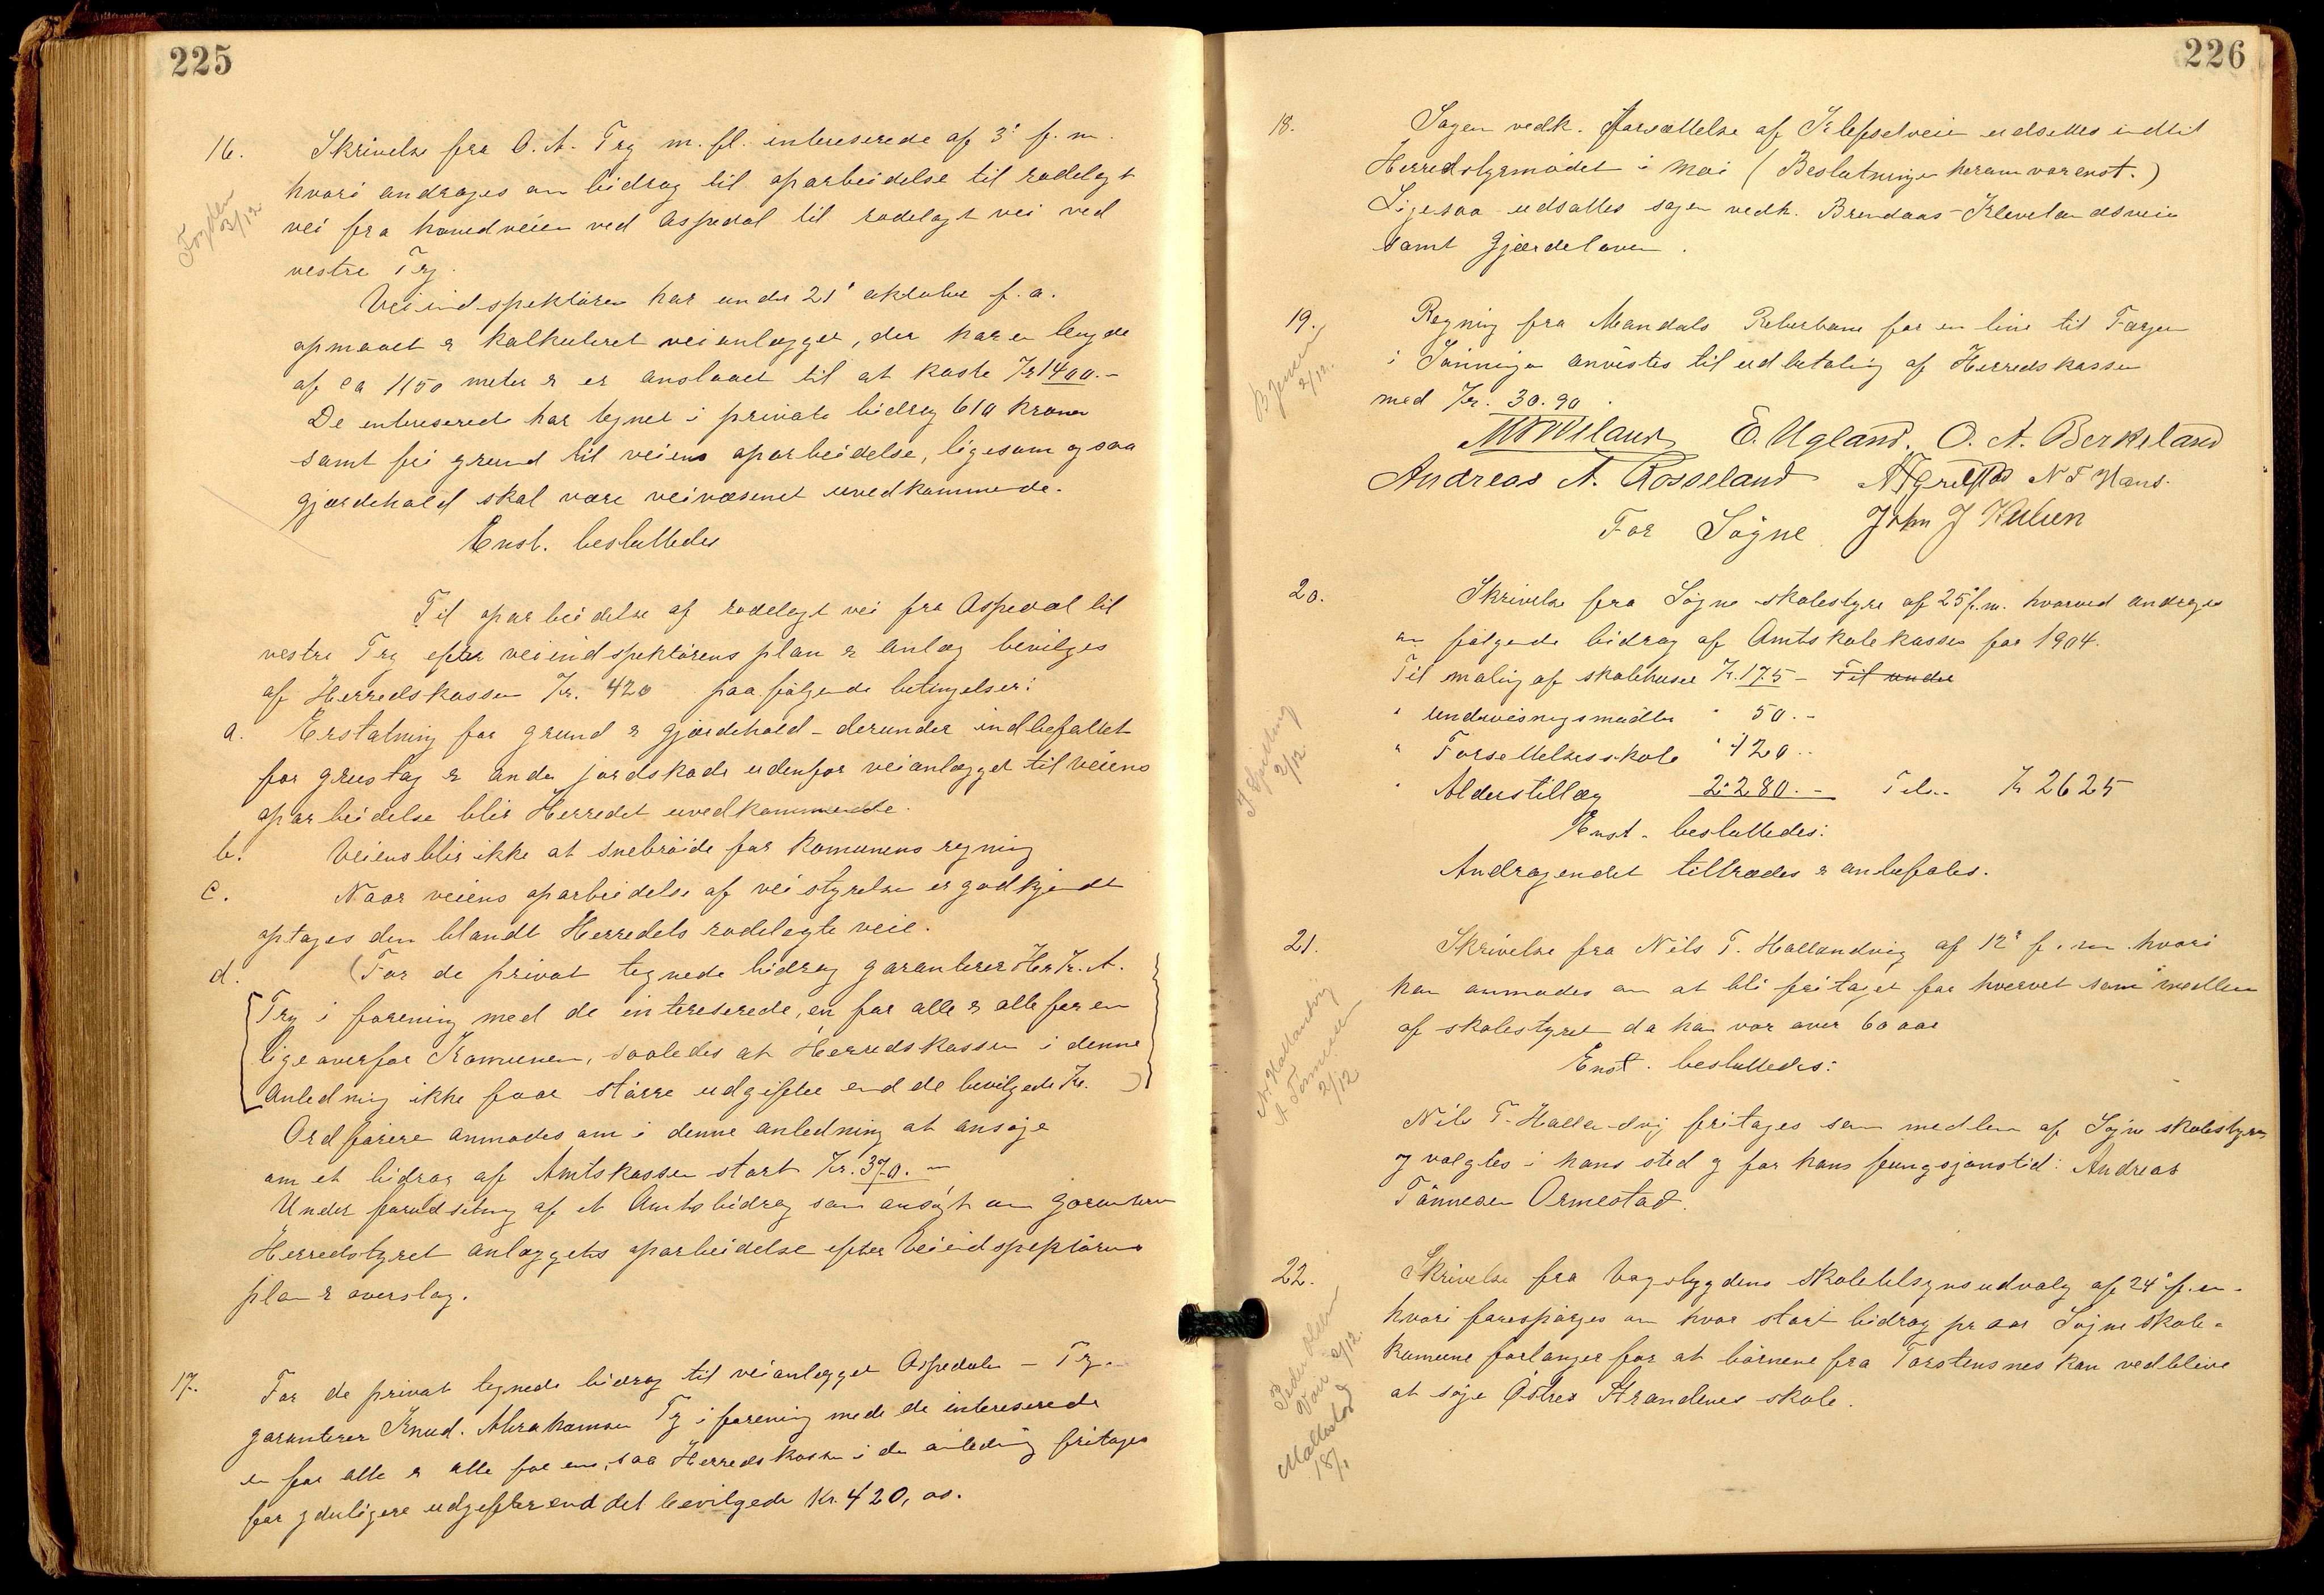 225
16. Skrivelse fra O. A. Try m. fl. intereserede af 3' f. m.
hvori andrages om bidrag til oparbeidelse til rodelagt
vei fra hovedveien ved Aspedal til rodelagt vei ved
vestre Try.
Fogden 3/12
Veiindspektøren har under 21' oktober f. a.
opmaalt & kalkuleret veianlægget, der har en længde
af ca 1150 meter & er anslaaet til at koste Kr 1400.-
De intereserede har tegnet i private bidrag 610 kroner
samt fri grund til veiens oparbeidelse, ligesom ogsaa
gjærdehold skal være veivæsenet uvedkommende.
Enst. besluttedes
Til oparbeidelse af rodelagt vei fra Aspedal til
vestre Try efter veiindspektørens plan & anlæg bevilges
af Herredskassen Kr. 420 paa følgende betingelser:
a. Erstatning for grund & gjærdehold - derunder indbefattet
for grustag & anden jordskade udenfor veianlægget til veiens
oparbeidelse blir Herredet uvedkommende.
b. Veiens blir ikke at snebrøide for komunens regning
c. Naar veiens oparbeidelse af veistyrelsen er godkjendt
optages den blandt Herredets rodelagte veie.
d. (For de privat tegnede bidrag garanterer Hr Kr. A.
Try i forening med de intereserede, en for alle & alle for en
ligeoverfor Komunen, saaledes at Herredskassen i denne
Anledning ikke faar større udgifter end de bevilgede Kr. )
Ordføreren anmodes om i denne anledning at ansøge
om et bidrag af Amtskassen stort Kr. 370. -
Under forudsetning af et Amtsbidrag som ansøgt om garanterer
Herredstyret anlæggets oparbeidelse efter Veiindspektørens
plan & overslag.
17. For de privat tegnede bidrag til veianlægget Aspedalen - Try.
garanterer Knud. Abrahamsen Try i forening mede de intereserede
en for alle & alle for en, saa Herredskassen i den anledning fritages
for yderligere udgifter end det bevilgede Kr. 420, oo.
226
18. Sagen vedk. forsættelse af Klepselveien udsettes indtil
Herredstyrmødet i Mai (Beslutningen herom var enst.)
Ligesaa udsattes sagen vedk. Brendaas-Klevelandsveien
samt Gjærdeloven.
19. Regning fra Mandals Reberbane for en line til Færgen
i Tønningen anvistes til udbetaling af Herredskassen
med Kr. 30.90.
B Jensen 2/12.
E. Ugland. O. A. Berkeland
Andreas A. Rosseland N T Hans.
For Søgne John J
20. Skrivelse fra Søgne skolestyre af 25' f.m. hvorved andrages
om følgende bidrag af Amtskolekassen for 1904.
Til maling af skolehuset Kr. 175 - Til under
" undervisningsmidler " 50.-
" Forsettelsesskole " 120..
" Alderstillæg 2280.- Tils. Kr 2625
2/12
Enst. besluttedes:
Andragendet tiltrædes & anbefales.
21. Skrivelse fra Nils T. Hallandvig af 12' f. m. hvori
han anmodes om at bli fritaget for hvervet som medlem
af skolestyret da han var over 60 aar
N. Hallandvig
A Tønnesen
2/12
Enst. besluttedes:
Nils T. Hallandvig fritages som medlem af Søgne skolestyre
og valgtes i hans sted og for hans fungsjonstid: Andreas
Tønnesen Ormestad.
22. Skrivelse fra Vagsbygdens skoletilsynsudvalg af 24' f. m.
hvori forespørges om hvor stort bidrag pr aar Søgne skole-
komune forlanger for at børnene fra Torstensnes kan vedblive
at søge Østre Strandenes skole.
2/12.